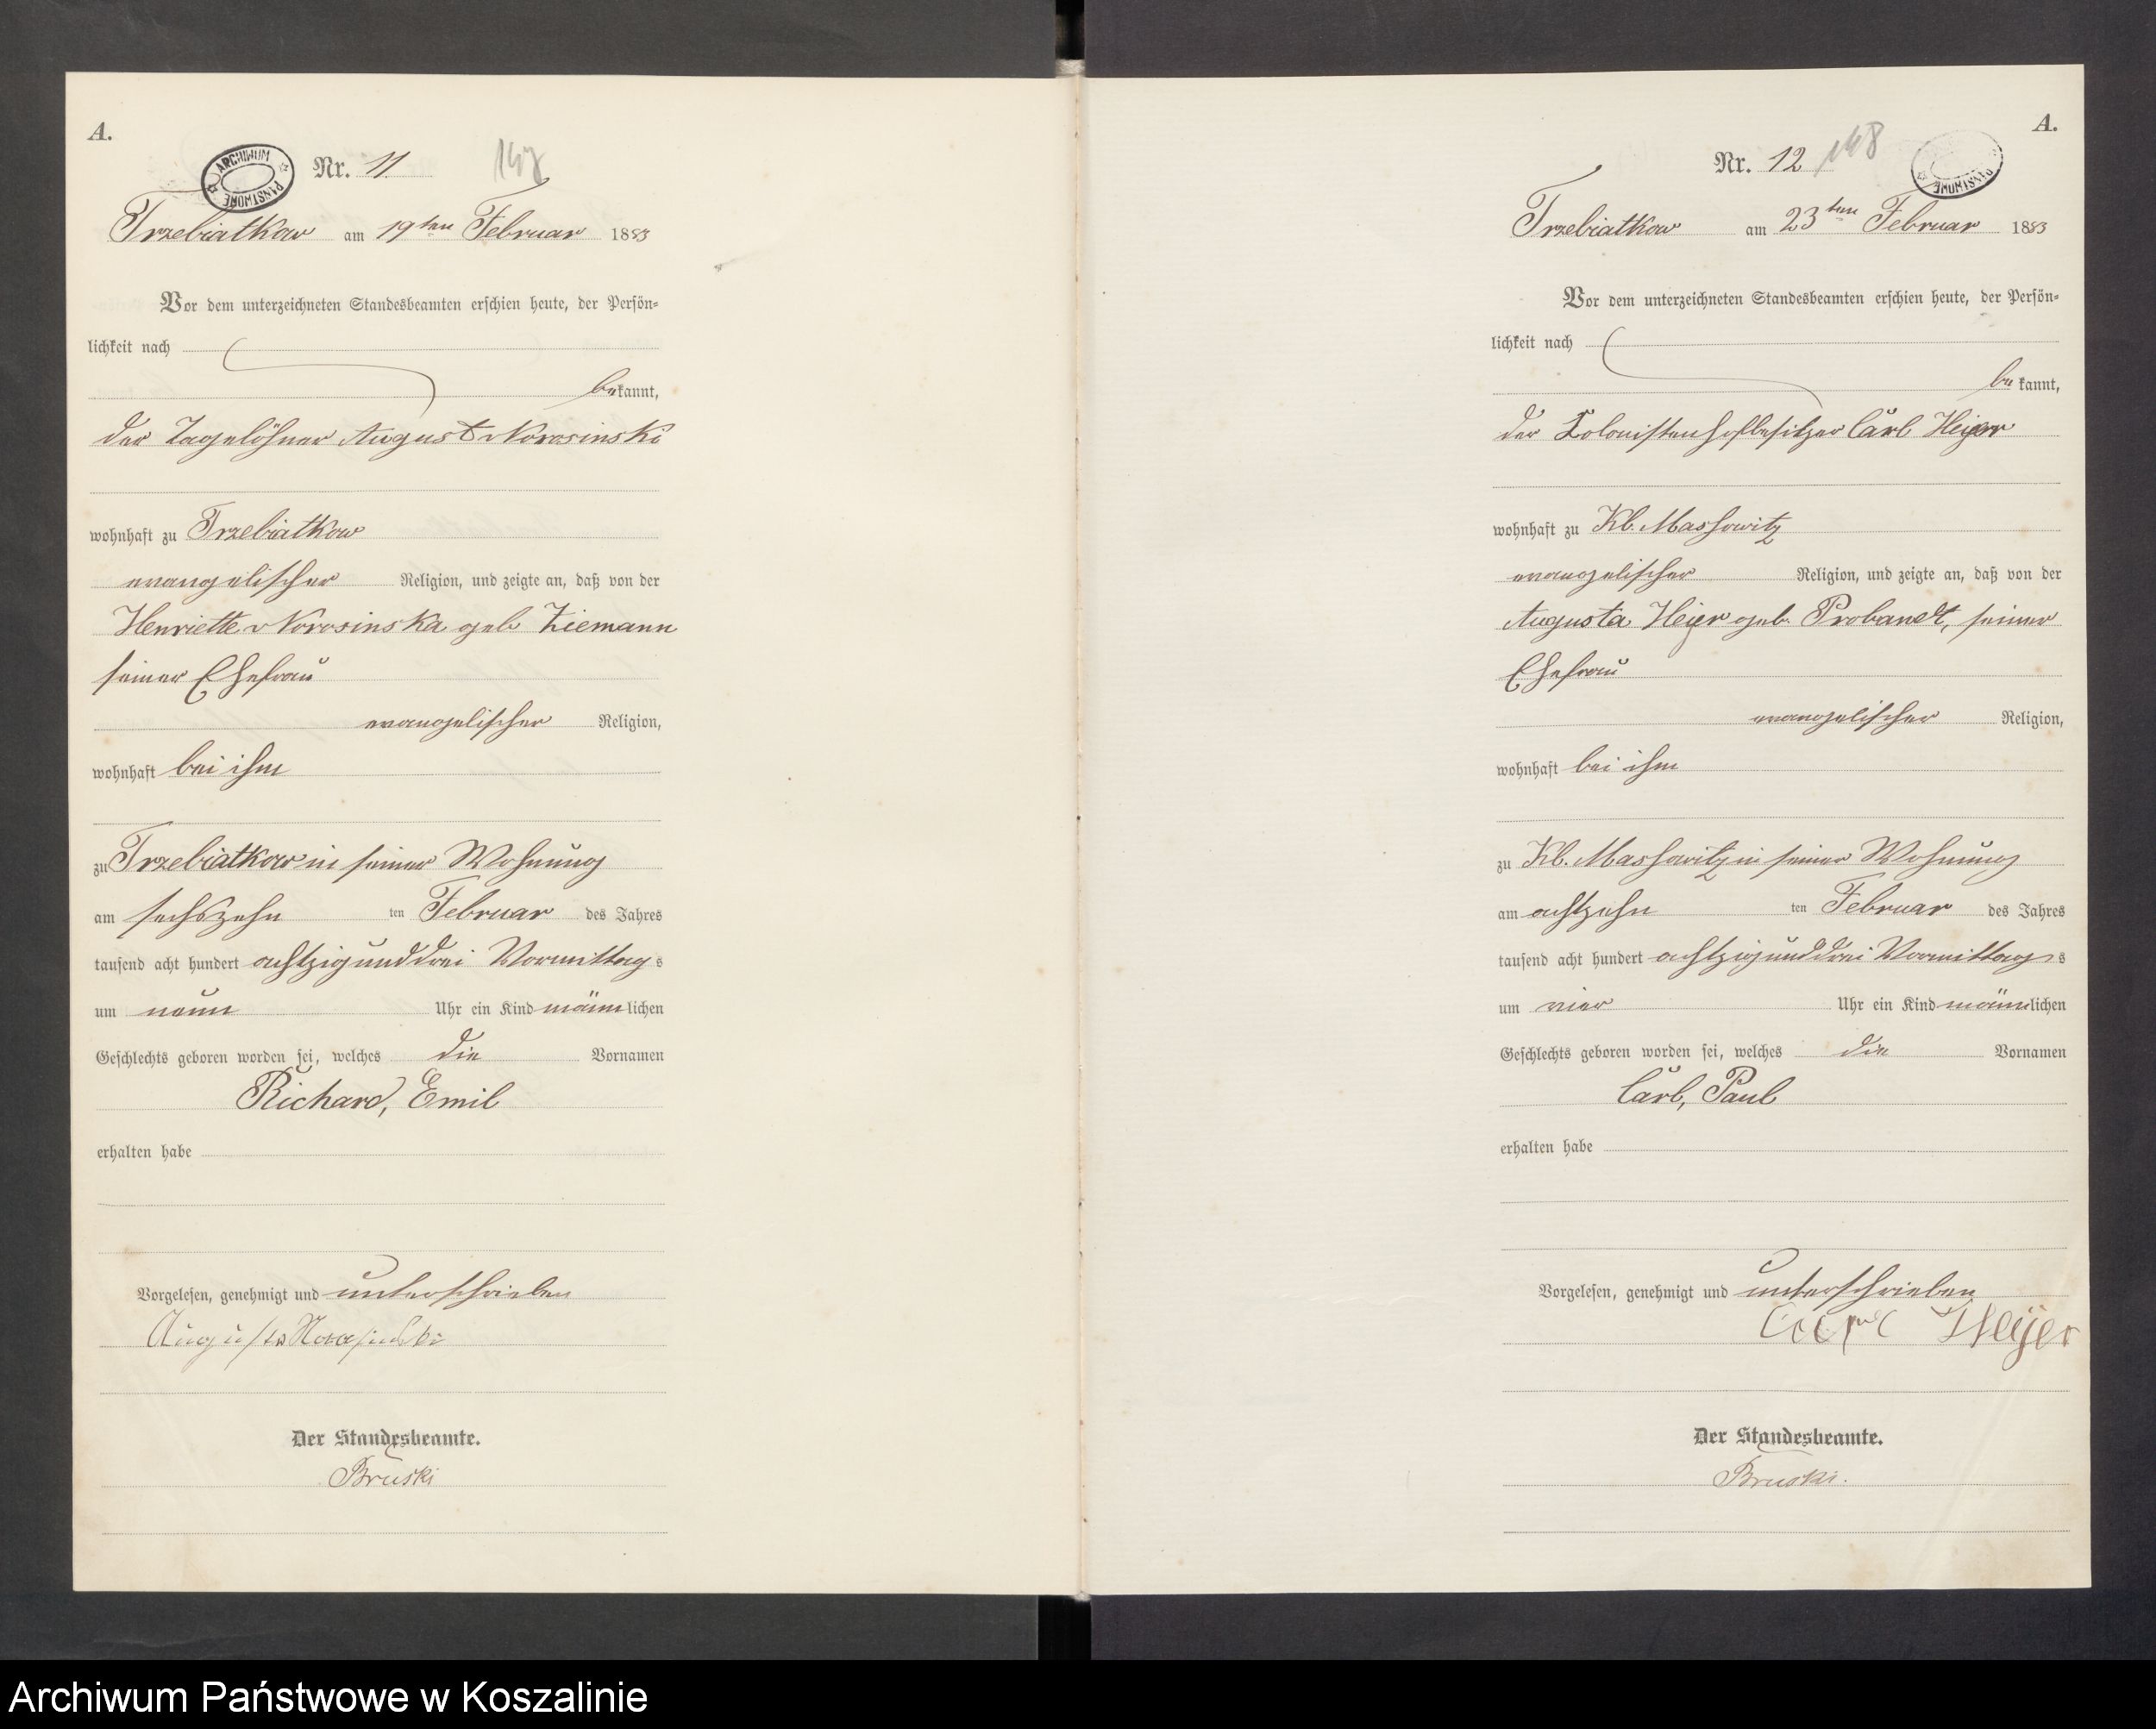 A.
ARCHIWUM PAŃSTWOWE
Nr. 11
147
Trzebiatkow am 19ten Februar 1883
Vor dem unterzeichneten Standesbeamten erschien heute, der Persön-
lichkeit nach
bekannt,
der Tagelöhner August v Norosinski
wohnhaft zu Trzebiatkow
evangelischer Religion, und zeigte an, daß von der
Henriette v Norosinska geb Ziemann
seiner Ehefrau
evangelischer Religion,
wohnhaft bei ihm
zu Trzebiatkow in seiner Wohnung
am sechszehn ten Februar des Jahres
tausend acht hundert achtzig und drei Vormittags
um neun Uhr ein Kind männlichen
Geschlechts geboren worden sei, welches die Vornamen
Richard, Emil
erhalten habe
Vorgelesen, genehmigt und unterschrieben
August
Der Standesbeamte.
Bruski
A.
Nr. 12
148
PAŃSTWOWE
Trzebiatkow am 23ten Februar 1883
Vor dem unterzeichneten Standesbeamten erschien heute, der Persön-
lichkeit nach
bekannt,
der Kolonistenhofbesitzer Carl Heyer
wohnhaft zu Kl. Massowitz
evangelischer Religion, und zeigte an, daß von der
Augusta Heyer geb. Probandt, seiner
Ehefrau
evangelischer Religion,
wohnhaft bei ihm
zu Kl. Massowitz in seiner Wohnung
am achtzehn ten Februar des Jahres
tausend acht hundert achtzig und drei Vormittags
um vier Uhr ein Kind männlichen
Geschlechts geboren worden sei, welches die Vornamen
Carl, Paul
erhalten habe
Vorgelesen, genehmigt und unterschrieben
Carl Heijer
Der Standesbeamte.
Bruski.
Archiwum Państwowe w Koszalinie